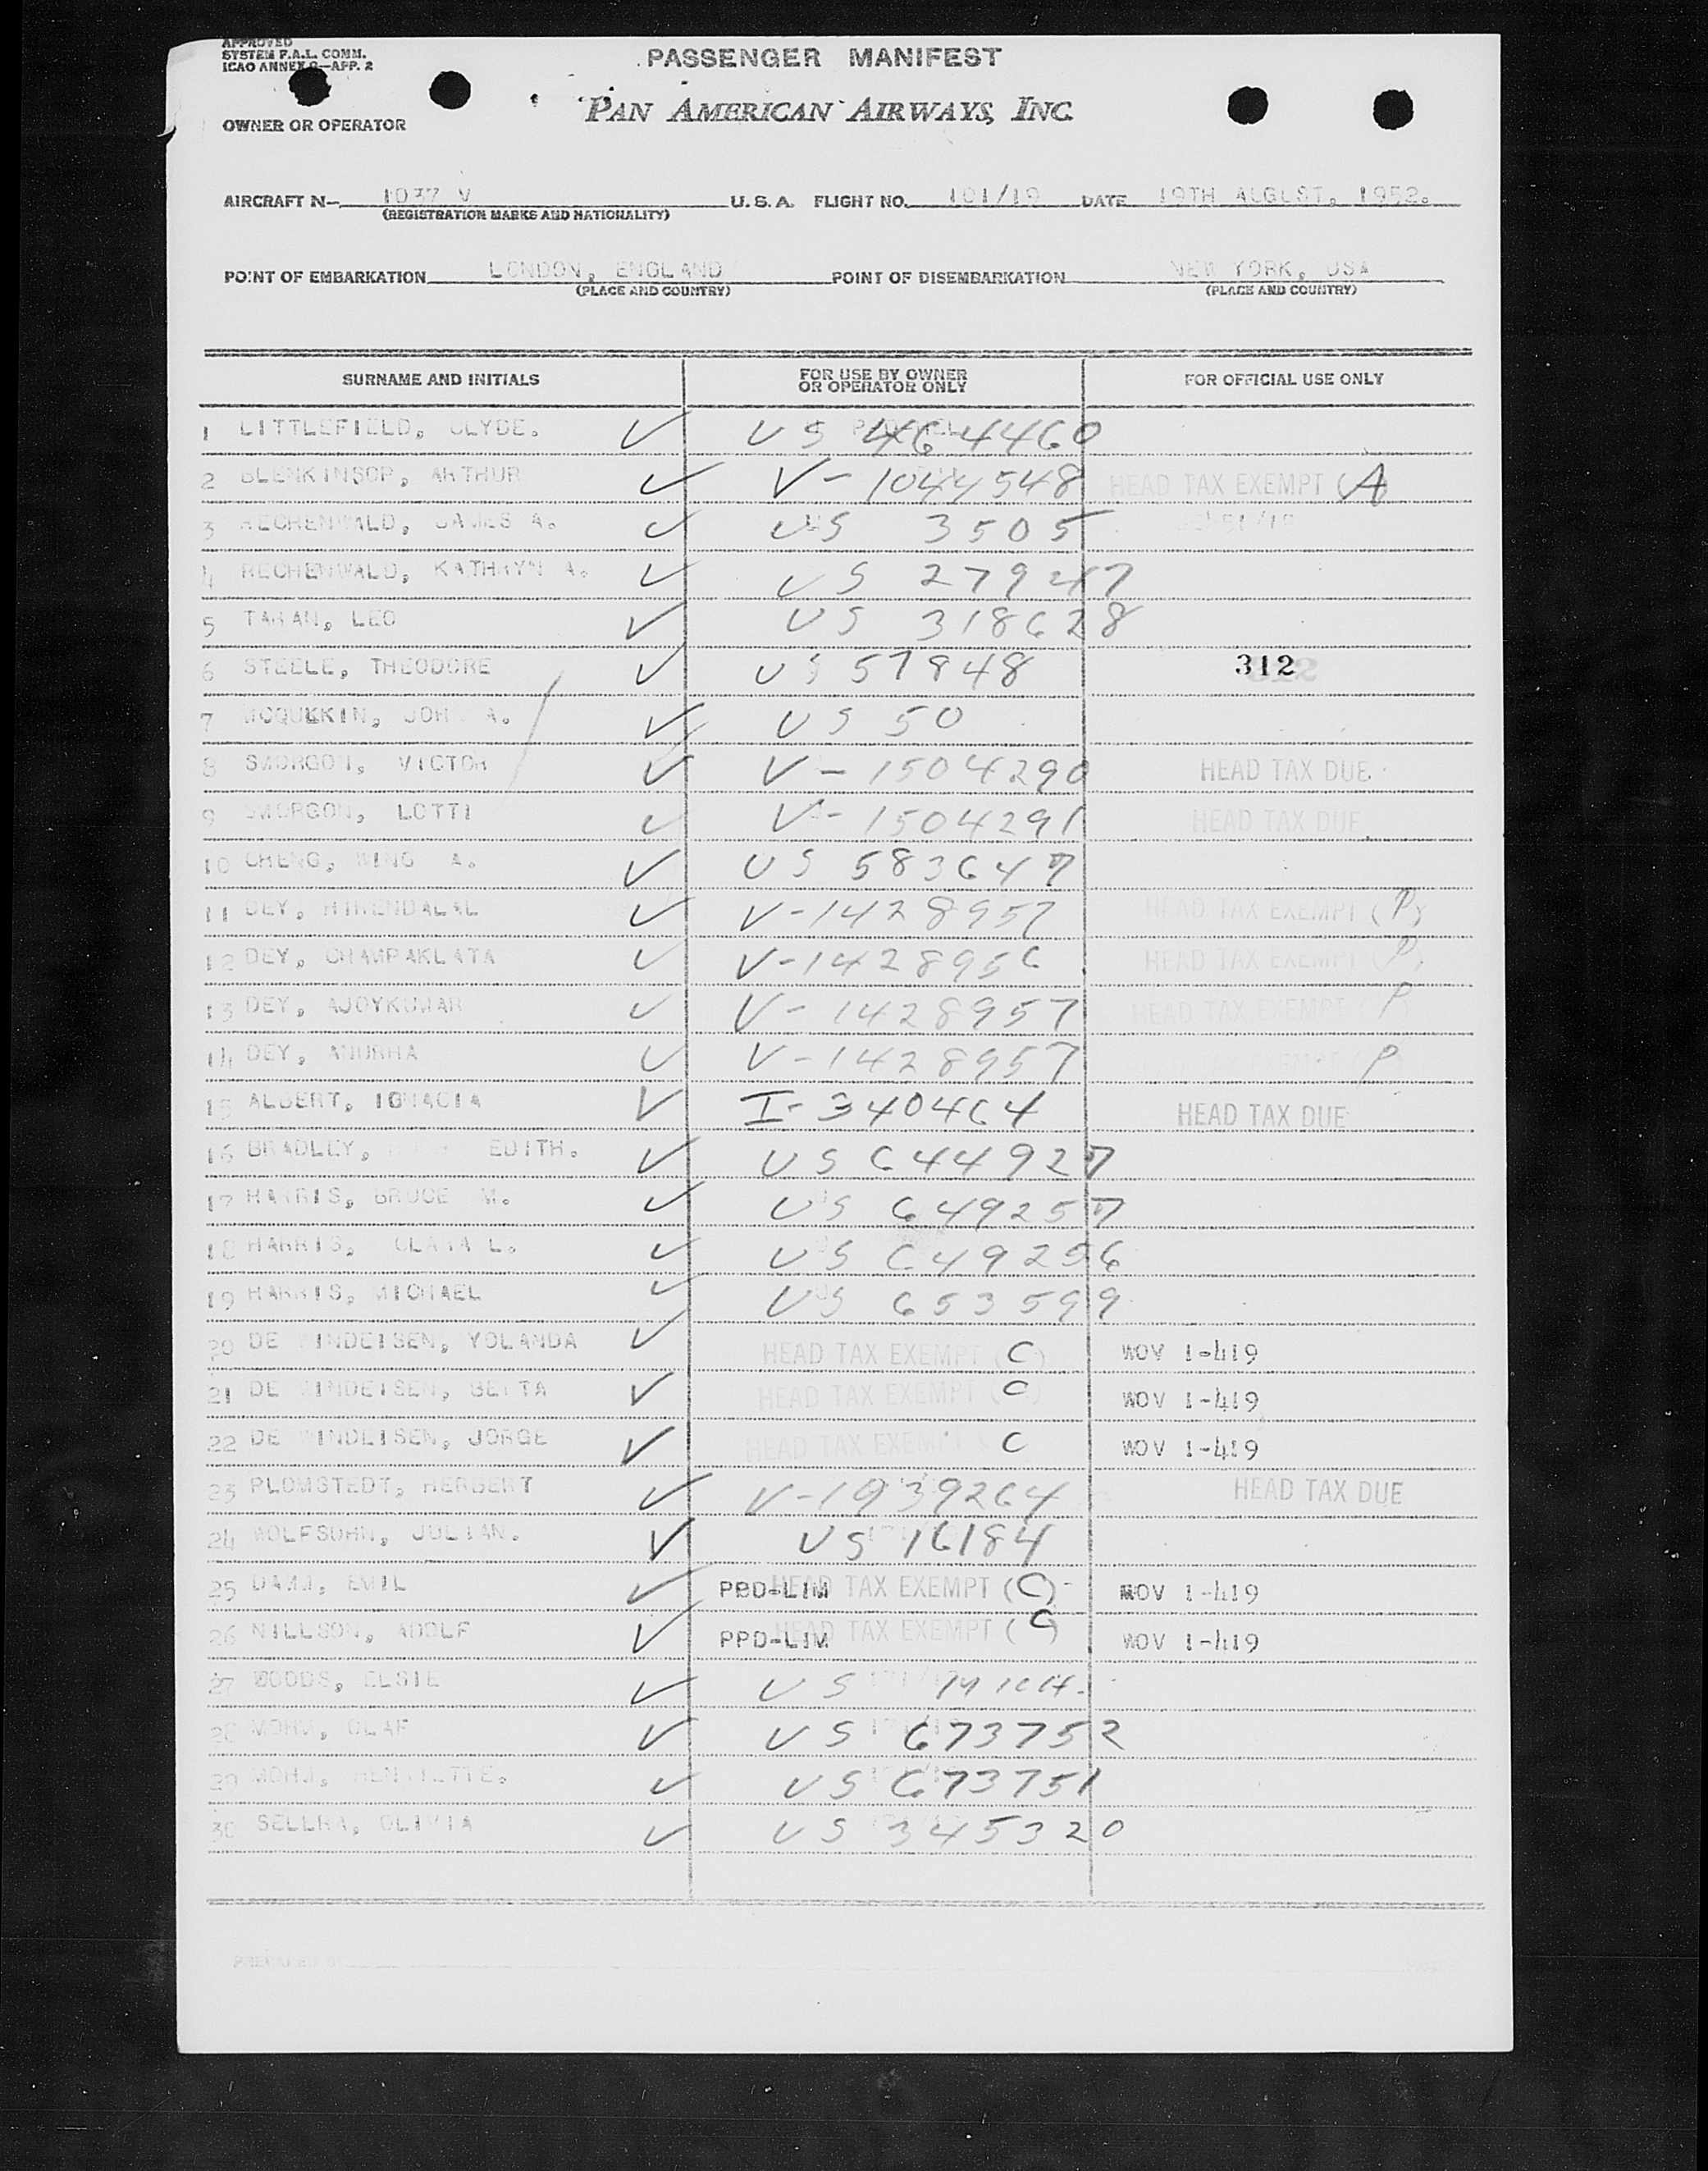 APPROVED
SYSTEM F.A.L. COMM.
ICAO ANNEX 9—APP. 2
PASSENGER MANIFEST
PAN AMERICAN AIRWAYS, INC.
OWNER OR OPERATOR
AIRCRAFT N— 1037 V U. S. A. FLIGHT NO. 101/19 DATE 19TH AUGUST, 1952.
(REGISTRATION MARKS AND NATIONALITY)
POINT OF EMBARKATION LONDON, ENGLAND POINT OF DISEMBARKATION NEW YORK, USA
(PLACE AND COUNTRY) (PLACE AND COUNTRY)
SURNAME AND INITIALS FOR USE BY OWNER OR OPERATOR ONLY FOR OFFICIAL USE ONLY
1 LITTLEFIELD, CLYDE. ✓ US 464460
2 BLENKINSOP, ARTHUR ✓ V-1044548 HEAD TAX EXEMPT (A)
3 RECHENWALD, JAMES A. ✓ US 3505
4 RECHENWALD, KATHRYN A. ✓ US 27947
5 TARAN, LEO ✓ US 318628
6 STEELE, THEODORE ✓ US 57848 312
7 JOHN A. ✓ US 50
8 SMORGON, VICTOR ✓ V-1504290 HEAD TAX DUE
9 SMORGON, LOTTI ✓ V-1504291 HEAD TAX DUE
10 CHENG, WING A. ✓ US 583647
11 DEY, HIRENDALAL ✓ V-1428957 HEAD TAX EXEMPT (P)
12 DEY, CHAMPAKLATA ✓ V-1428956 HEAD TAX EXEMPT (P)
13 DEY, AJOYKUMAR ✓ V-1428957 HEAD TAX EXEMPT P
14 DEY, ANURHA ✓ V-1428957 P
15 ALBERT, IGNACIA ✓ I-340464 HEAD TAX DUE
16 BRADLEY, EDITH. ✓ US 644927
17 HARRIS, BRUCE M. ✓ US 649257
18 HARRIS, CLARA L. ✓ US 649256
19 HARRIS, MICHAEL ✓ US 653599
20 DE WINDEISEN, YOLANDA ✓ HEAD TAX EXEMPT (C) WOV 1-419
21 DE WINDEISEN, BETTA ✓ HEAD TAX EXEMPT (C) WOV 1-419
22 DE WINDEISEN, JORGE ✓ HEAD TAX EXEMPT C WOV 1-419
23 PLOMSTEDT, HERBERT ✓ V-1939264 HEAD TAX DUE
24 WOLFSOHN, JULIAN. ✓ US 16184
25 DAMM, EMIL ✓ PPD-LIM HEAD TAX EXEMPT (C) WOV 1-419
26 NILLSON, ADOLF ✓ PPD-LIM HEAD TAX EXEMPT (C) WOV 1-419
27 WOODS, ELSIE ✓ US
28 MOHN, OLAF ✓ US 673752
29 MOHN, HENRIETTE. ✓ US 673751
30 SELLRA, OLIVIA ✓ US 345320
PREPARED BY